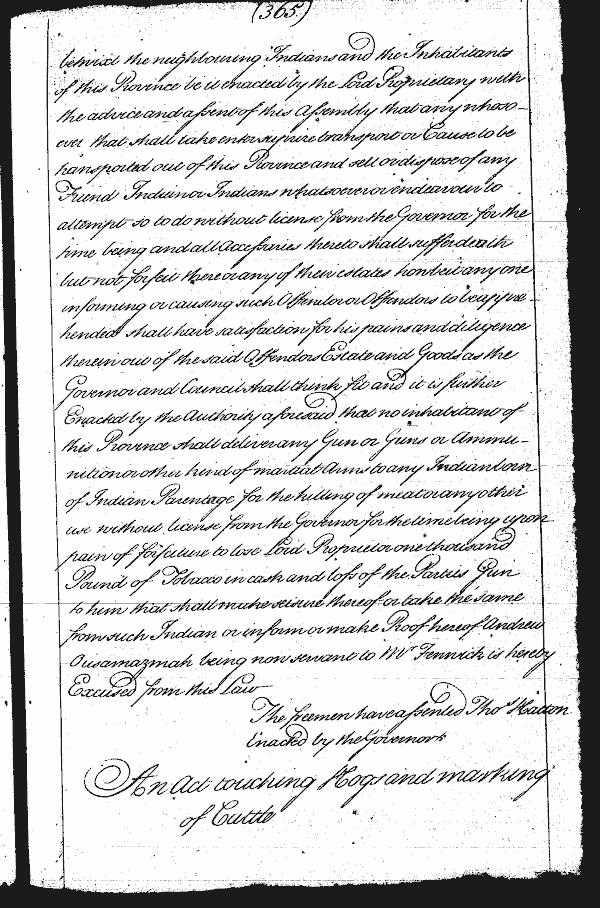 (365)
betwixt the neighbouring Indians and the Inhabitants
of this Province be it enacted by the Lord Proprietary with
the advice and assent of this Assembly that any whoso-
ever that shall take entice surprize transport or Cause to be
transported out of this Province and sell or dispose of any
Friend Indian or Indians whatsoever or endeavour to
attempt so to do without license from the Governor for the
time being and all Accessaries thereto shall suffer death
but not forfeit there or any of their estates
informing or causing such Offendor or Offendors to be appre-
hended shall have satisfaction for his pains and diligence
therein out of the said Offendors Estate and Goods as the
Governor and Council shall think fit and it is further
Enacted by the Authority aforesaid that no inhabitant of
this Province shall deliver any Gun or Guns or Ammu-
nition or other kind of martial Arms to any Indian born
of Indian Parentage for the killing of meat or any other
use without license from the Governor for the time being upon
pain of forfuture to lose Lord Proprietor one thousand
Pound of Tobacco in cash and loss of the Parties Gun
to him that shall make seisure thereof or take the same
from such Indian or inform or make Proof hereof Andrew
Ousamazmah being now servant to Mr Fenwick is hereby
Excused from this Law
The freemen have assented Thos Hatton
Enacted by the Governor
An Act touching Hogs and marking
of Cattle